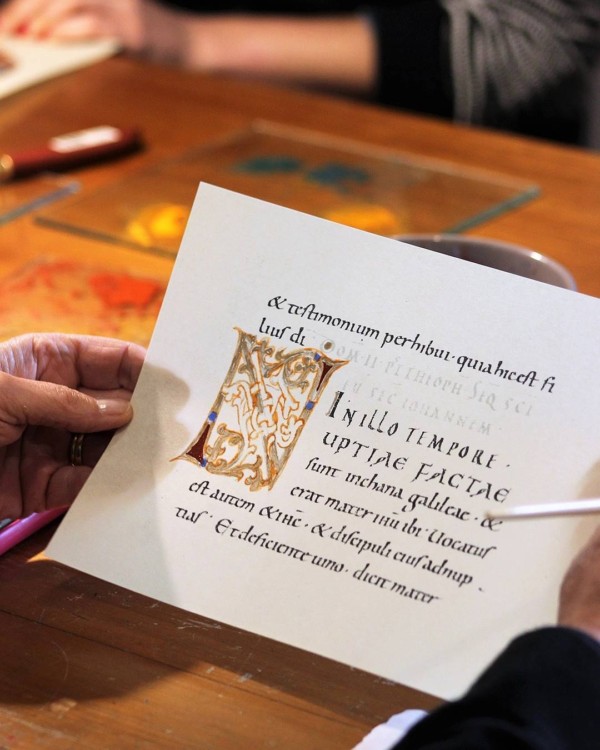 & testimonium perhibui · quia hic est fi
lius di
SIC IOHANNEM
IN ILLO TEMPORE ·
UPTIAE FACTAE
sunt inchana galileae · &
erat mater ihu ibi · Uocatus
est autem & ihc · & discipuli eius adnup
tias · Et deficiente uino · dicit mater